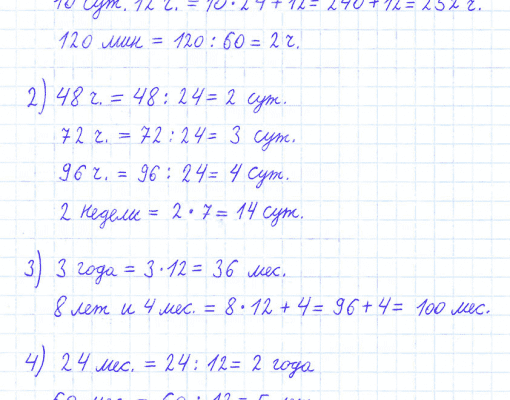 10 сут. 12 ч. = 10 · 24 + 12 = 240 + 12 = 252 ч.
120 мин = 120 : 60 = 2 ч.
2) 48 ч. = 48 : 24 = 2 сут.
72 ч. = 72 : 24 = 3 сут.
96 ч. = 96 : 24 = 4 сут.
2 недели = 2 · 7 = 14 сут.
3) 3 года = 3 · 12 = 36 мес.
8 лет и 4 мес. = 8 · 12 + 4 = 96 + 4 = 100 мес.
4) 24 мес. = 24 : 12 = 2 года
60 мес. = 60 : 12 = 5